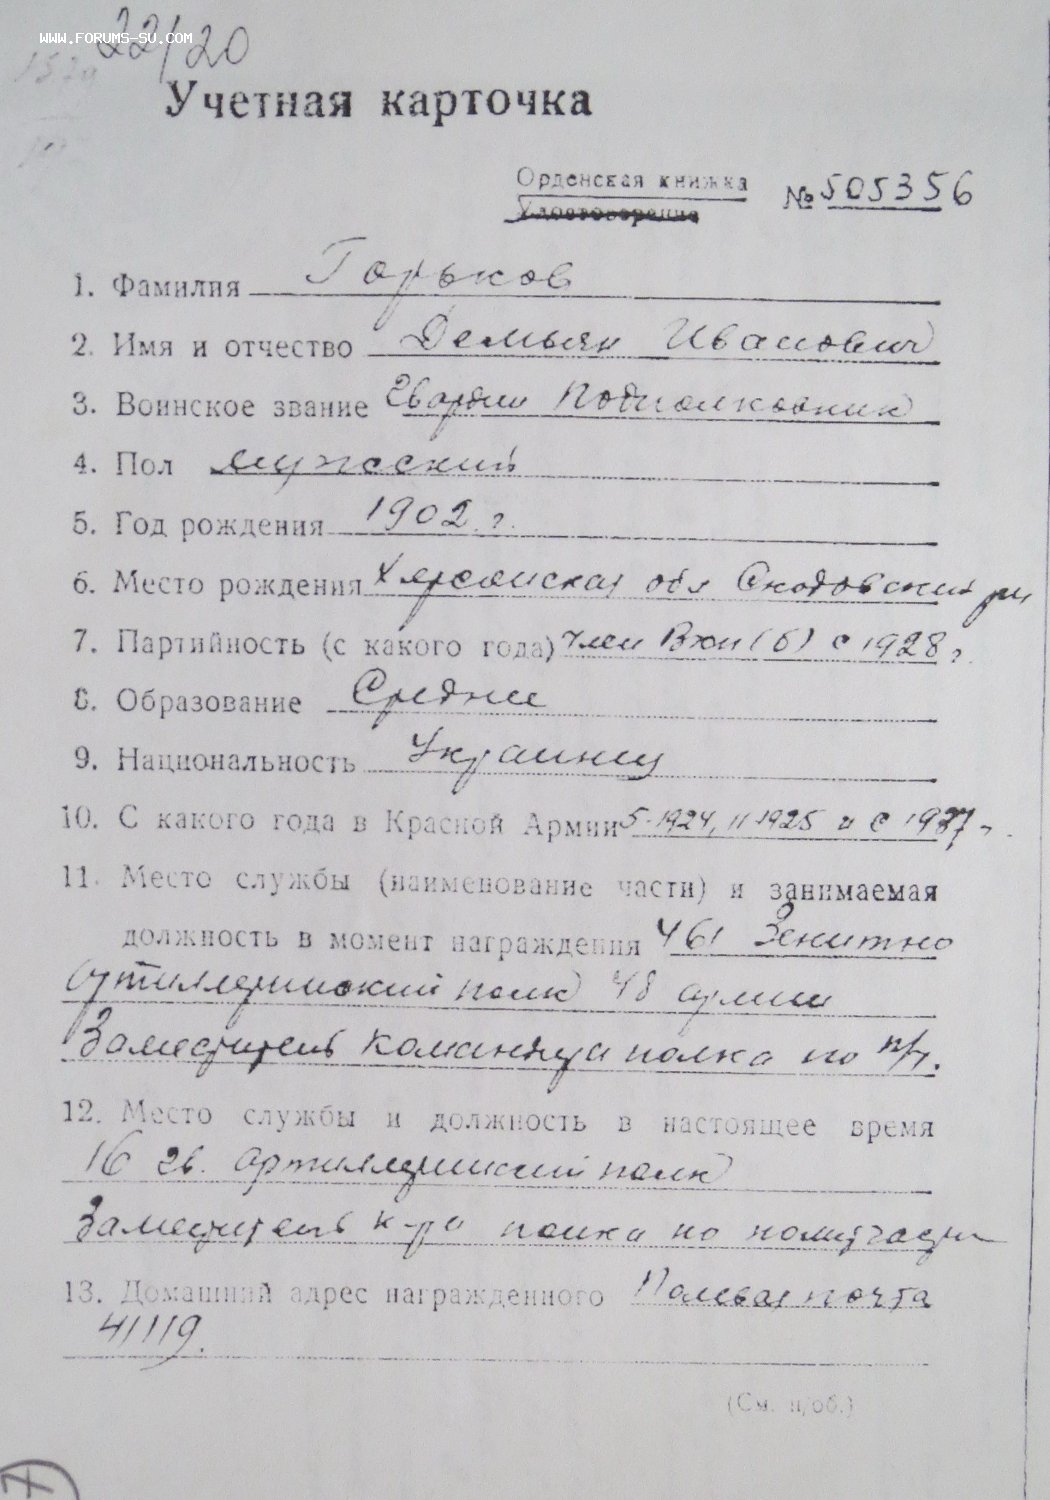 WWW.FORUMS-SU.COM
22/20
Учетная карточка
Орденская книжка
Удостоверение
№ 505356
1. Фамилия Горьков
2. Имя и отчество Демьян Иванович
3. Воинское звание Гвардии Подполковник
4. Пол мужской
5. Год рождения 1902 г.
6. Место рождения Херсонская обл Скадовский рн
7. Партийность (с какого года) член Вкп(б) с 1928 г.
8. Образование Среднее
9. Национальность Украинец
10. С какого года в Красной Армии 5-1924, 11-1925 и с 1937 г.
11. Место службы (наименование части) и занимаемая
должность в момент награждения 461 Зенитно
артиллерийский полк 48 армии
Заместитель командира полка по п/ч.
12. Место службы и должность в настоящее время
16 гв. артиллерийский полк
Заместитель к-ра полка по политчасти
13. Домашний адрес награжденного Полевая почта
41119.
(См. н/об.)